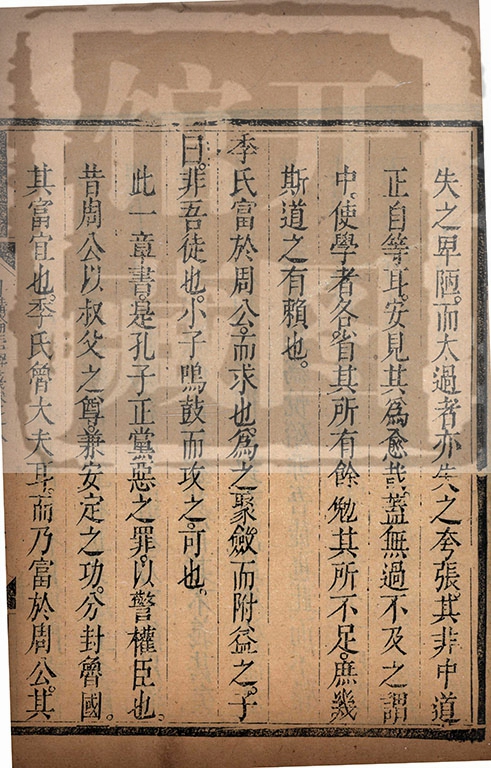 失之卑陋。而太過者亦失之夸張。其非中道
正自等耳。安見其為愈哉。蓋無過不及之謂
中。使學者各省其所有餘。勉其所不足。庶幾
斯道之有賴也。
季氏富於周公。而求也。為之聚斂而附益之。子
曰。非吾徒也。小子鳴鼓而攻之。可也。
此一章書。是孔子正黨惡之罪。以警權臣也。
昔周公以叔父之尊。兼安定之功。分封魯國。
其富宜也。季氏魯大夫耳。而乃富於周公。其